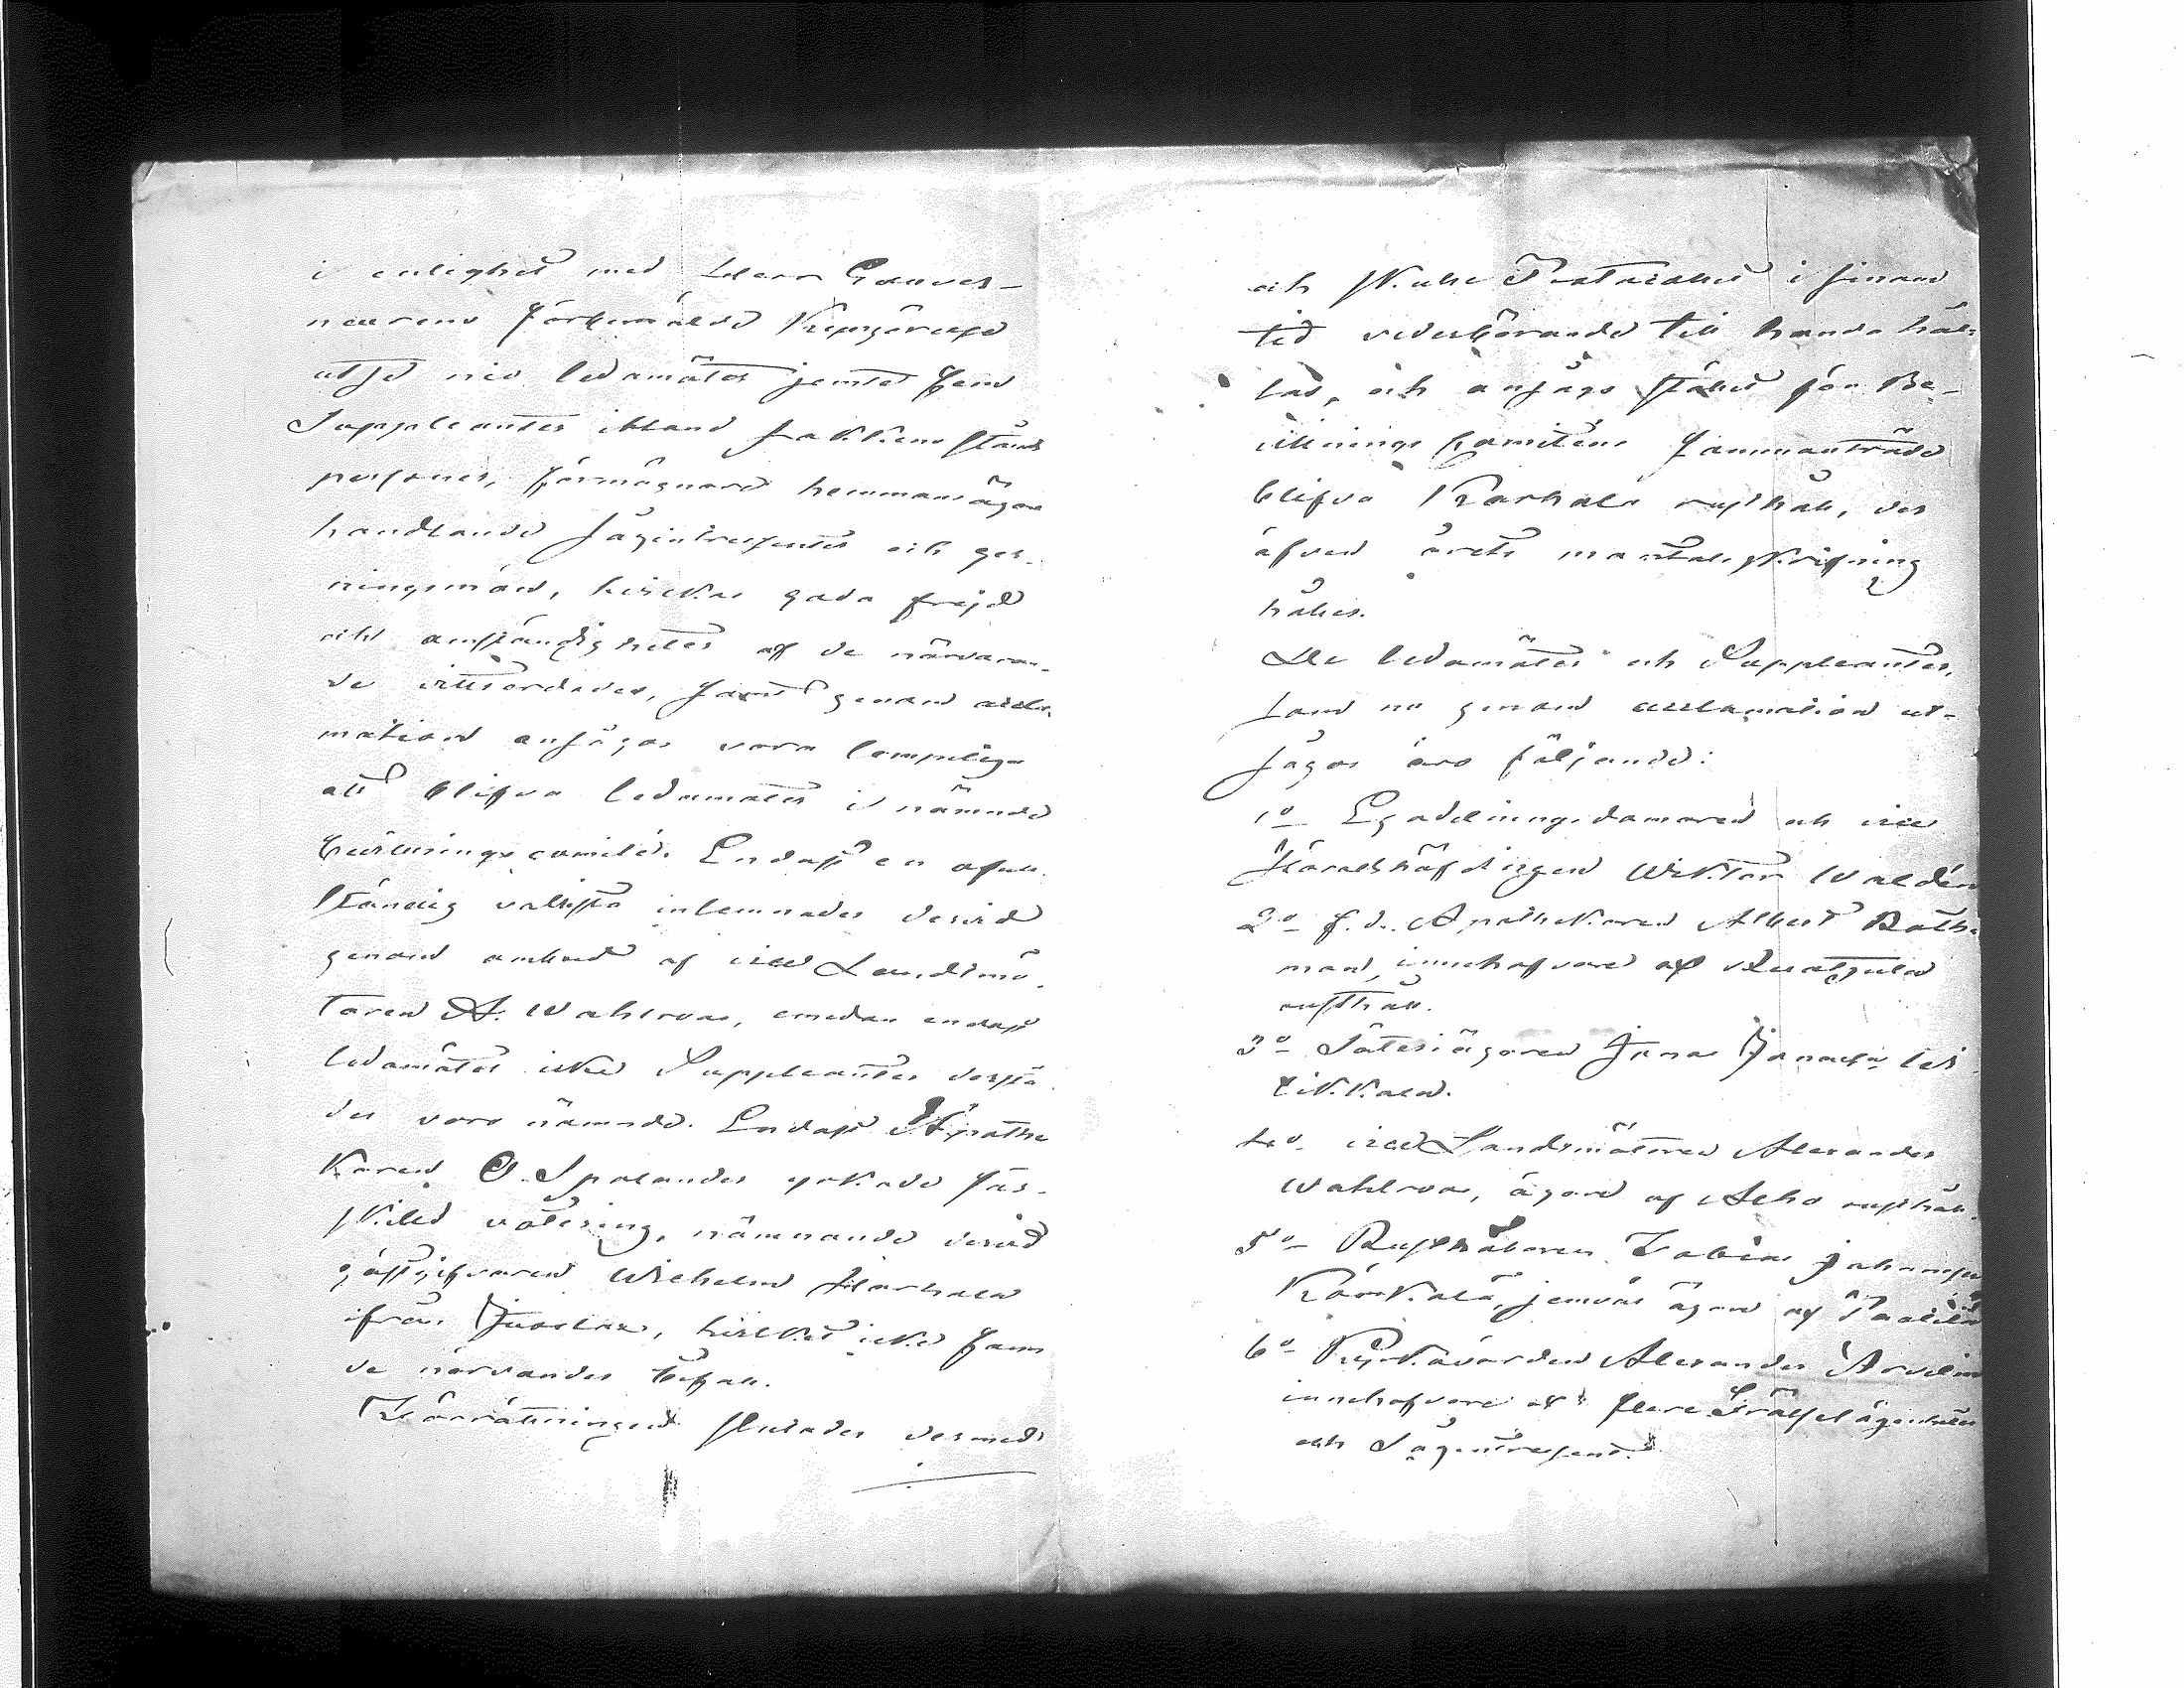 i enlighet med Herr Gouver-
neurens förberörde Kungörelse
utse nio ledamöter jemte fem
Suppleanter ibland socknens stånds
personer, förmögnare hemmansägare
handlande sågintressenter och ger-
ningsmän, hvilkas goda frejd
och omständigheter af de närvaran-
de vittsordades, samt genom accla-
mation ansågos vara lämpliga
att blifva ledamöter i nämnde
bevillnings comité. Endast en ofull-
ständig vallista inlemnades dervid
genom ombud af vice Landtmä-
taren A. Wahlroos, emedan endast
ledamöter icke Suppleanter derstä-
des voro nämnde. Endast Apothe
karen O. Spolander yrkade sär-
skild votering, nämnande dervid
gästgifvaren Wilhelm Harhala
ifrån, hvilket icke fann
de närvarandes bifall.
Förrättningen slutades dermed
och skulle Protocollet i sinom
tid vederbörande till handa hål-
las, och ansågs stället för Be-
villnings komiténs sammanträde
blifva Karhala rusthåll, der
äfven årets mantalsskrifning
hålles.
De ledamöter och Suppleanter,
som nu genom acclamation ut-
sågos äro följande:
1o Egodelningsdomaren och vice
Häradshöfdingen Wiktor Waldén
2o f. d. Apothekaren Albert Both-
man, innehafvare af
rusthåll.
3o Säteriägaren Jonas
4o vice Landtmätaren Alexander
Wahlroos, ägare af Alho rusthåll.
5o Rusthållaren Tobias Johansson
jemväl ägare af
6o Kyrkovärden Alexander Arvelin
innehafvare af flere Frälselägenheter
och Sågintressent.